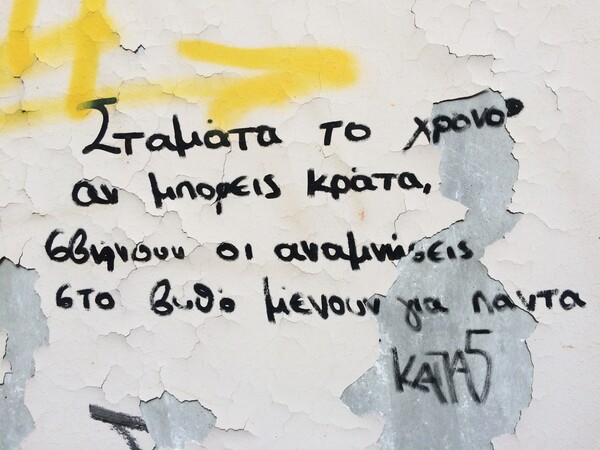 Σταμάτα το χρόνο
αν μπορεις κράτα,
σβήνουν οι αναμνήσεις
στο βυθό μένουν για παντα
ΚΑΠΑ5